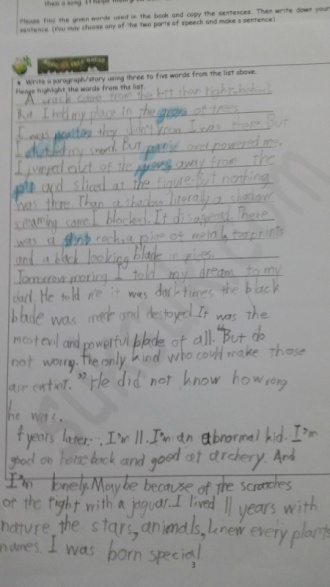 Please find the given words used in the book and copy the sentences. Then write down your
sentence. (You may choose any of the two parts of speech and make a sentence)
Write a paragraph/story using three to five words from the list above.
Hence highlight the words from the list.
A came from the left than right behind
But I hid my place in the of trees
I was they didn't I was there But
my But panic overpowered me.
I jumped out of the away from the
and sliced at the figure. But nothing
was there. Than a shadow literaly a shadow
came I blocked. It disapeared. There
was a rock, a pice of metal, footprints
and a black looking blade in
Tomorrow I told my dream to my
dad. He told me it was dark times, the black
blade was made and destoyed. It was the
most evil and powerful blade of all. "But do
not worry. The only kind who could make those
are extint." He did not know how wrong
he was.
years later... I'm 11. I'm an abnormal kid. I'm
good on horse back and good at archery. And
I'm lonely. Maybe because of the scratches
or the fight with a jaguar. I lived 11 years with
nature, the stars, animals, I knew every plants
names. I was born special,